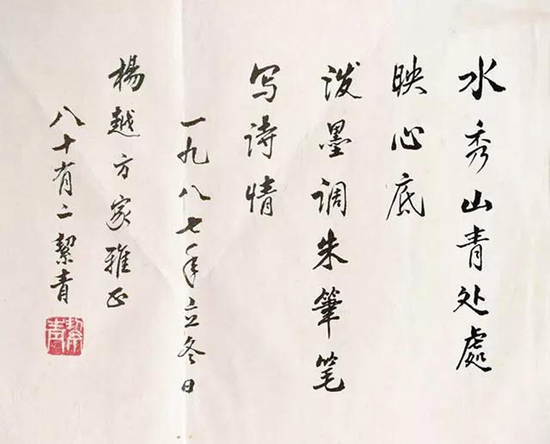 水秀山青处處
映心底
泼墨调朱筆笔
写诗情
一九八七年立冬日
楊越方家雅正
八十有二絜青
絜青